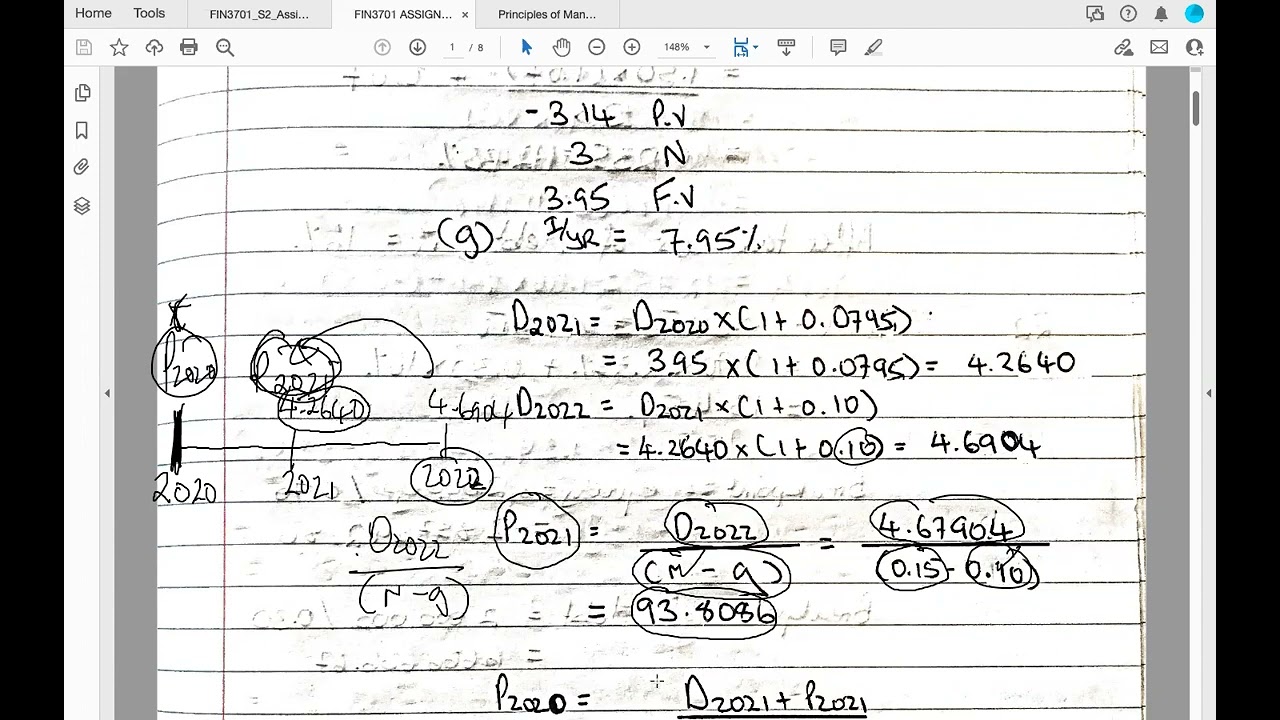 Home Tools FIN3701_S2_Assi... FIN3701 ASSIGN... × Principles of Man...
1 / 8 148%
-3.14 P.V
3 N
3.95 F.V
(g) I/YR = 7.95%
D2021 = D2020 × (1 + 0.0795)
= 3.95 × (1 + 0.0795) = 4.2640
P2020 P2021
4.2640 4.6904 D2022 = D2021 × (1 + 0.10)
= 4.2640 × (1 + 0.10) = 4.6904
2020 2021 2022
P2021 = D2022 / (r - g) = 4.67904 / (0.15 - 0.10)
D2022 / (r - g)
= 93.8086
P2020 = D2021 + P2021